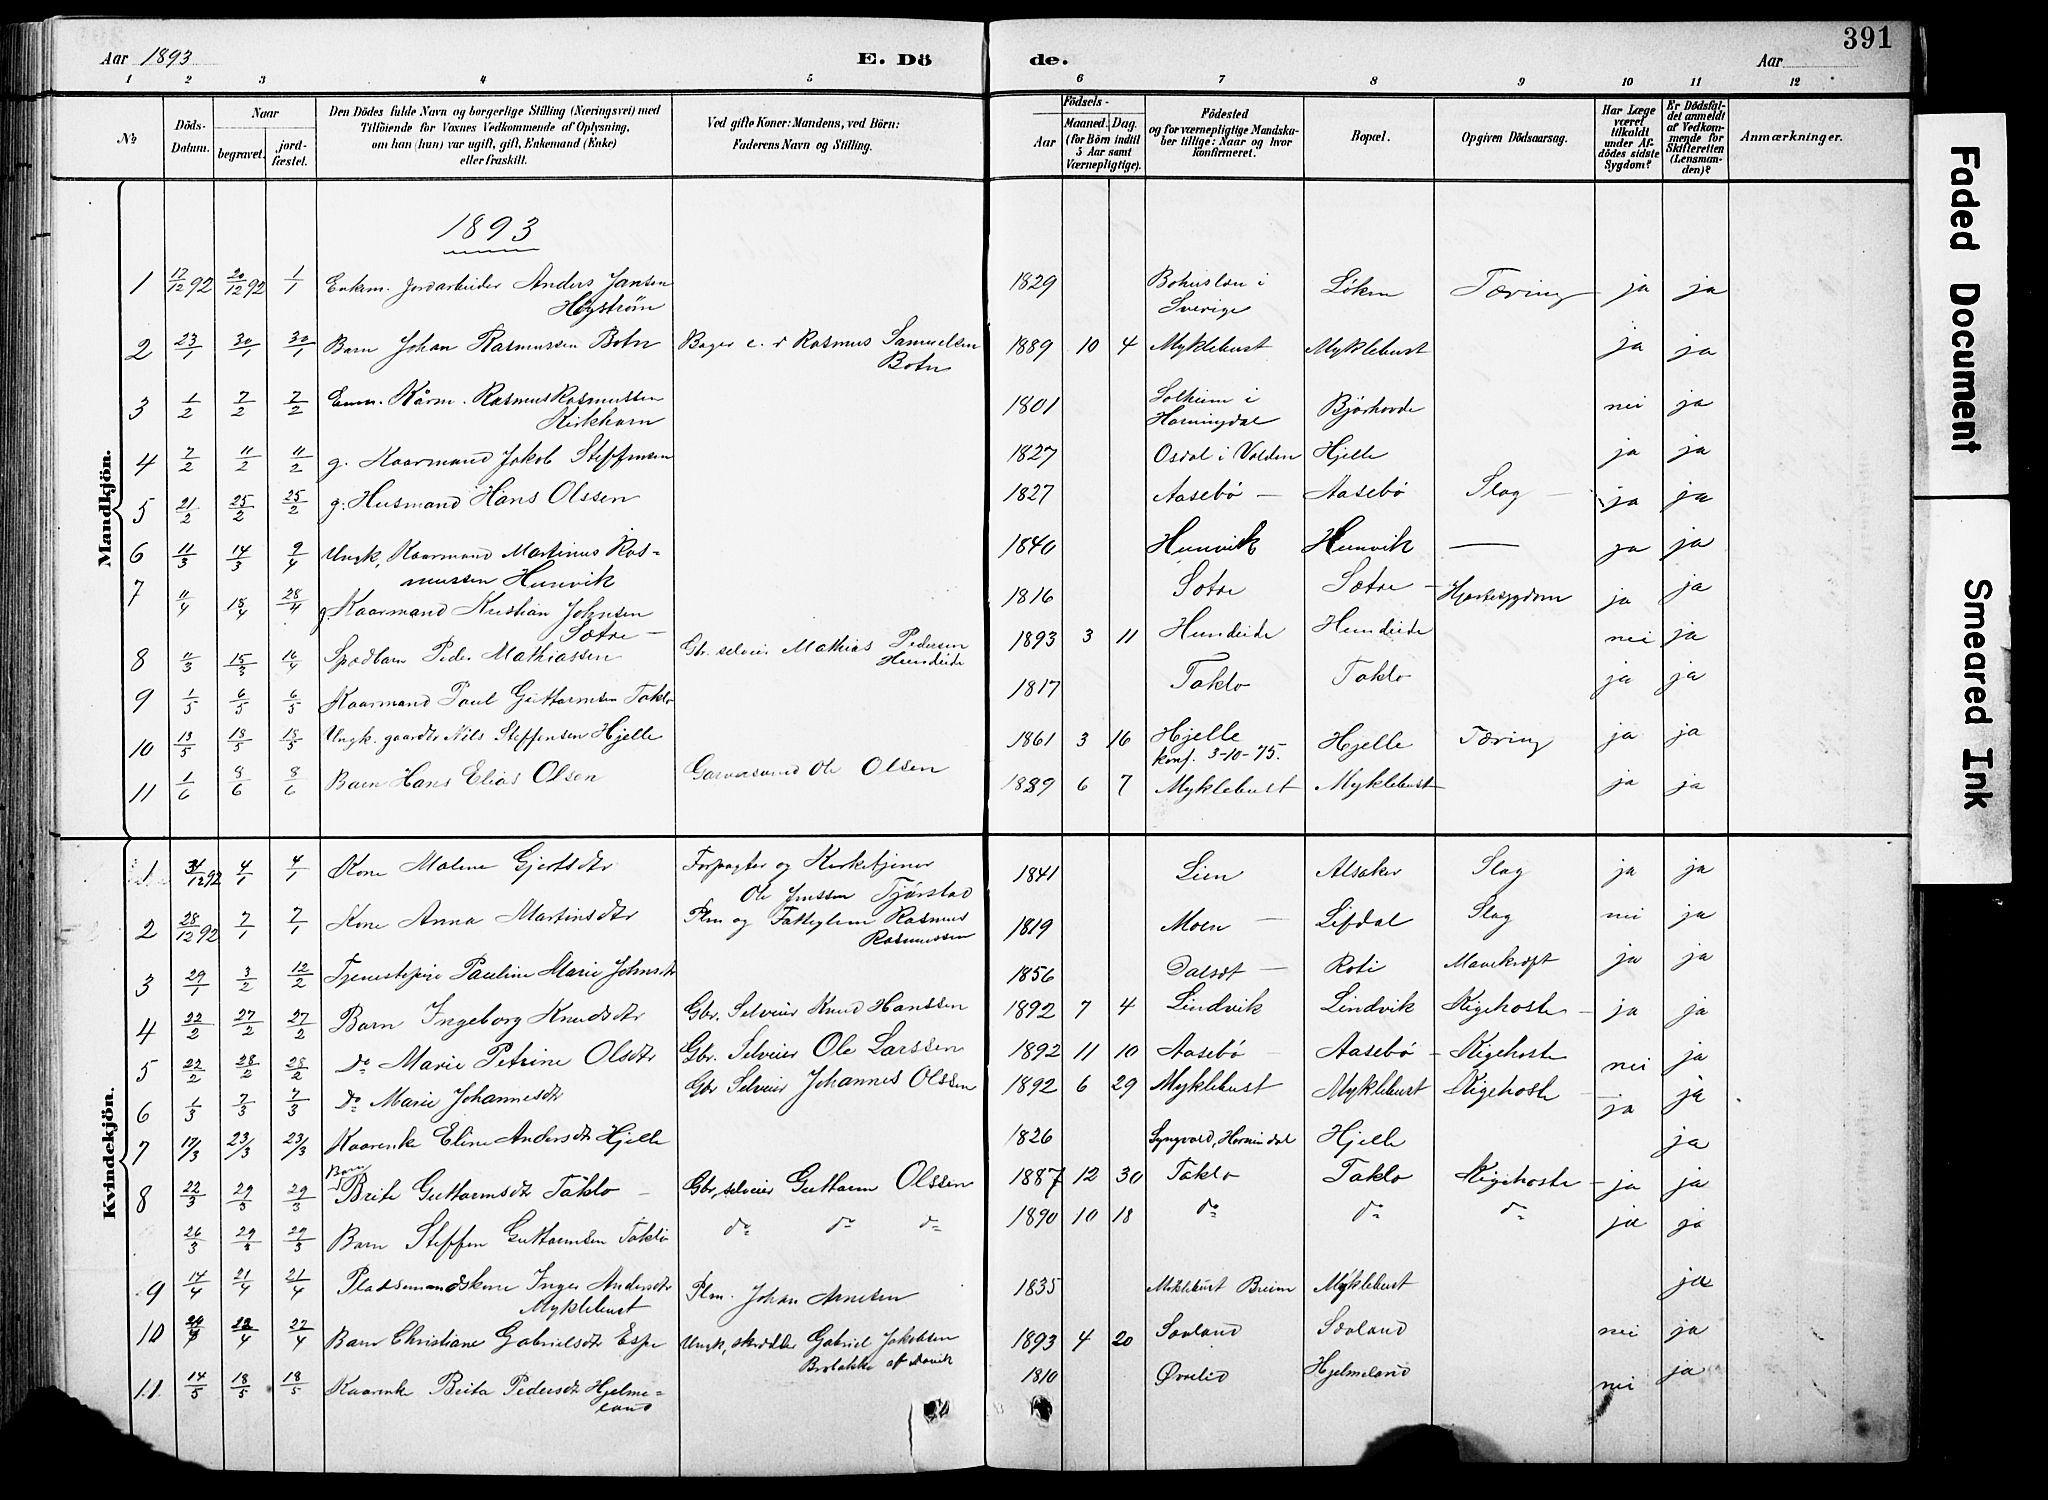 Aar 1893
E. Dö
de.
Aar
391
1 2 3 4 5 6 7 8 9 10 11 12
No
Döds-Datum.
Naar
begravet.
jord-fæstet.
Den Dödes fulde Navn og borgerlige Stilling (Næringsvei) med
Tilföiende for Voxnes Vedkommende af Oplysning,
om han (hun) var ugift, gift, Enkemand (Enke)
eller fraskilt.
Ved gifte Koner: Mandens, ved Börn:
Faderens Navn og Stilling.
Födsels-
Aar
Maaned. Dag.
(for Börn indtil 5 Aar samt Værnepligtige).
Födested
og for værnepligtige Mandska-
ber tillige: Naar og hvor
konfirmeret.
Bopæl.
Opgiven Dödsaarsag.
Har Læge været tilkaldt under Af-dödes sidste Sygdom?
Er Dödsfal-det anmeldt af Vedkom-mende for Skifteretten (Lensman-den)?
Anmærkninger.
Mandkjön.
1893
1 17/12 92 20/12 92 1/1 Enkm. Jordarbeider Anders Jansen 1829 Bohuslen i Sverige Löken Tæring ja ja
2 23/1 30/1 30/1 Barn Johan Rasmussen Botn Rasmus Samuelsen Botn 1889 10 4 Myklebust Myklebust ja ja
3 1/2 7/2 7/2 Kårm. Rasmus Rasmussen Kirkhorn 1801 Solheim i Horningdal nei ja
4 7/2 11/2 11/2 g. Kaarmand Jakob Steffensen 1827 Osdal i Volden Hjelle ja ja
5 21/2 25/2 25/2 g. Husmand Hans Olssen 1827 Aasebø Aasebø Slag ja ja
6 11/3 14/3 9/4 Ungk. Kaarmand Martinus Ras-
mussen Hunvik 1840 Hunvik Hunvik — ja ja
7 11/4 18/4 28/4 g. Kaarmand Kristian Johnsen
Sætre 1816 Sætre Sætre Hjertesygdom ja ja
8 11/3 15/3 16/4 Spædbarn Peder Mathiassen Gbr. selveier Mathias Pedersen Hundeide 1893 3 11 Hundeide Hundeide nei ja
9 1/5 6/5 6/5 Kaarmand Poul Guttormsen Taklo 1817 Taklo Taklo ja ja
10 13/5 18/5 18/5 Ungk. gaardbr Nils Steffensen Hjelle 1861 3 16 Hjelle
konf. 3-10-75. Hjelle Tæring ja ja
11 1/6 8/6 8/6 Barn Hans Elias Olsen Garversvend Ole Olsen 1889 6 7 Myklebust Myklebust ja ja
Kvindekjön.
1 31/12 92 4/1 4/1 Kone Malene Gjertsdtr Forpagter og Kirketjener
Ole Jenssen Tjørstad 1841 Lien Alsaker Slag ja ja
2 28/12 92 7/1 7/1 Kone Anna Martinsdtr Plm og Fattiglem Rasmus
Rasmussen 1819 Moen Lefdal Slag nei ja
3 29/1 3/2 12/2 Tjenestepige Pauline Marie Johnsdtr 1856 Roti Mavekræft ja ja
4 22/2 27/2 27/2 Barn Ingeborg Knudsdtr Gbr. Selveier Knud Hanssen 1892 7 4 Lindvik Lindvik Kigehoste ja ja
5 22/2 28/2 28/2 do Marie Petrine Olsdtr Gbr. Selveier Ole Larssen 1892 11 10 Aasebø Aasebø Kigehoste nei ja
6 1/3 7/3 7/3 do Marie Johannesdtr Gbr Selveier Johannes Olssen 1892 6 29 Myklebust Myklebust Kigehoste ja ja
7 17/3 23/3 23/3 Kaarenke Eline Andersdtr Hjelle 1826 Hornindal Hjelle ja
8 22/3 29/3 29/3 Barn Brite Guttormsdtr Taklo Gbr. selveier Guttorm Olssen 1887 12 30 Taklo Taklo Kigehoste ja ja
26/3 29/3 29/3 Barn Steffen Guttormsen Taklo do do do 1890 10 18 do do do ja ja
9 14/4 21/4 21/4 Pladsemandskone Inger Andersdtr
Myklebust Plm. Johan Arnesen 1835 Myklebust Breim Myklebust ja
10 22/4 Barn Christiane Gabrielsdtr Espe Ungk, skrædder Gabriel Jakobsen 1893 4 20 Sæland Sæland nei ja
11 14/5 18/5 18/5 Kaarenke Brita Pedersdtr Hjelme-
land 1810 Øvrelid Hjelmeland nei ja
Faded Document
Smeared Ink